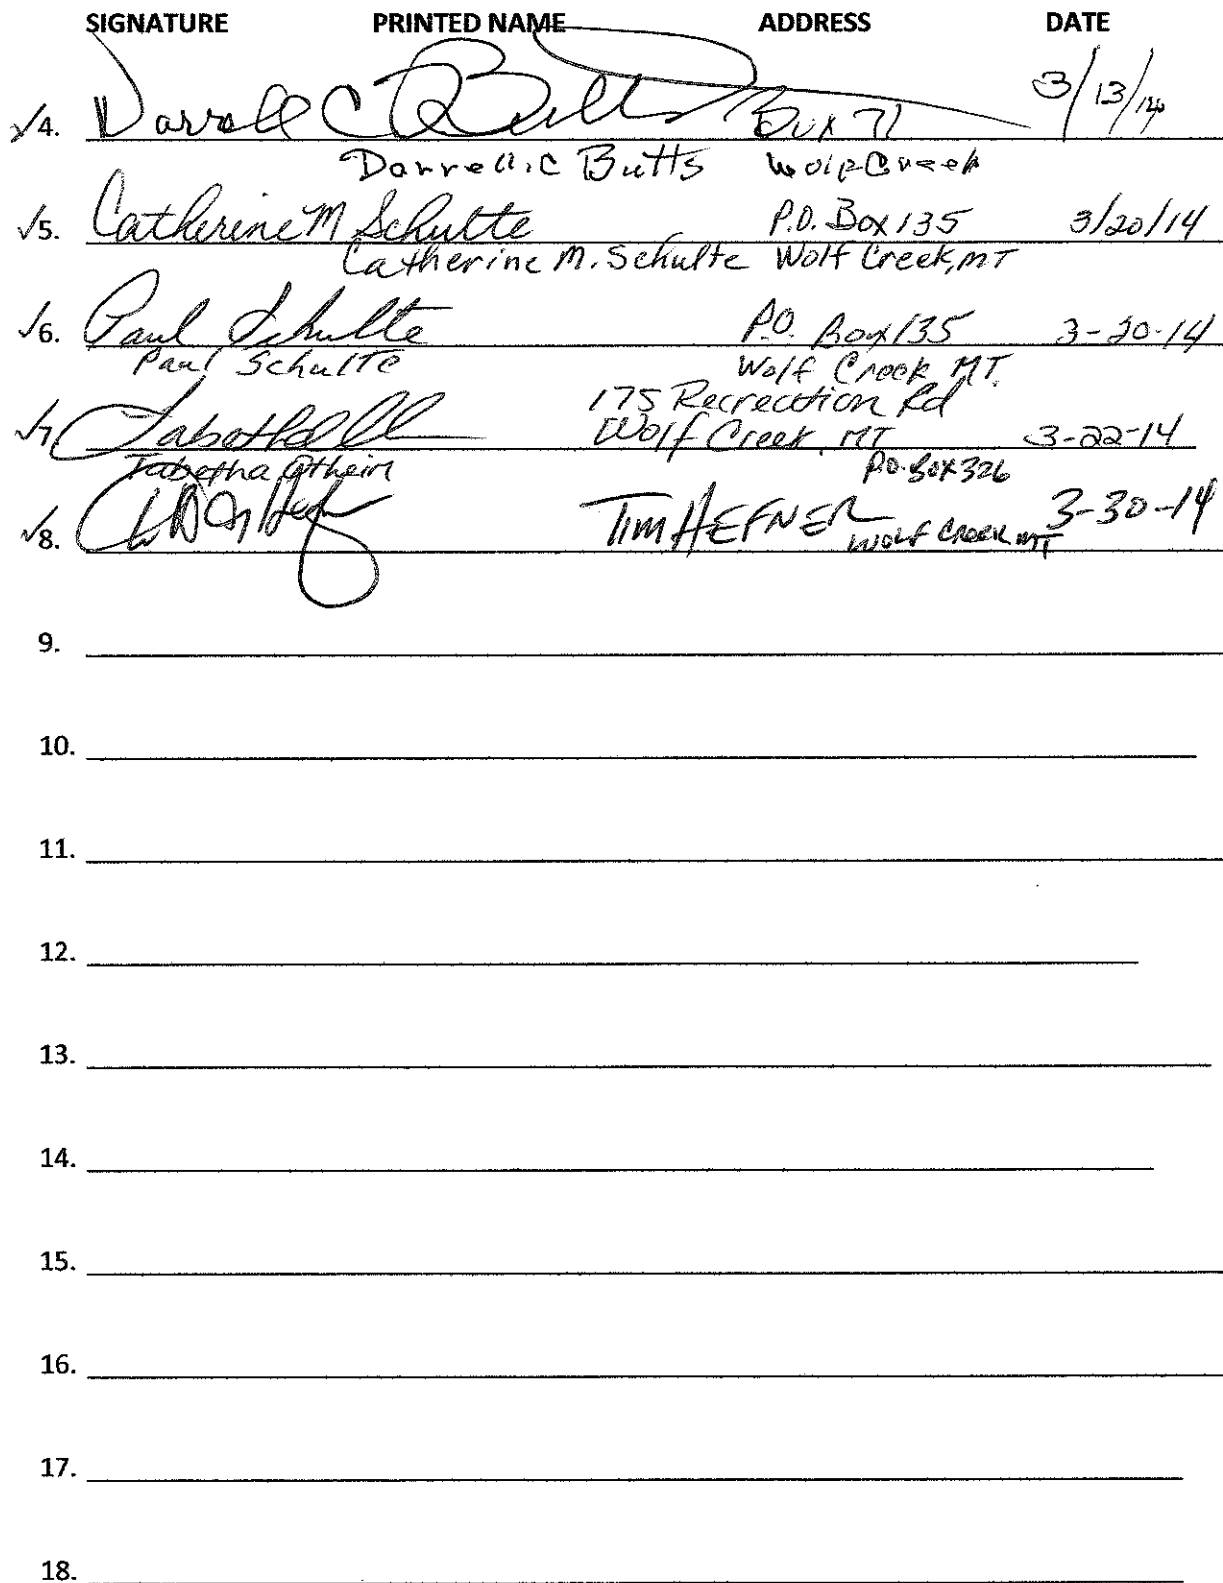 SIGNATURE PRINTED NAME ADDRESS DATE
√4. Darrell C Butts Box 71 3/13/14
Darrell.C Butts Wolf Creek
√5. Catherine M Schulte P.O. Box 135 3/20/14
Catherine M. Schulte Wolf Creek, MT
√6. Paul Schulte P.O. Box 135 3-20-14
Paul Schulte Wolf Creek MT.
175 Recreation Rd
√7. Tabetha Wolf Creek, MT 3-22-14
Tabetha P.O. Box 326
√8. TIM HEFNER WOLF CREEK MT 3-30-14
9.
10.
11.
12.
13.
14.
15.
16.
17.
18.